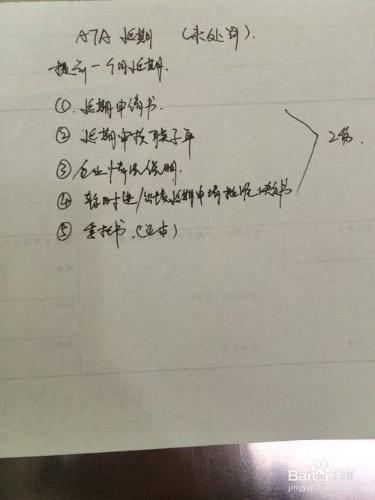 ATA 延期 (未处罚).
提前一个月延期.
① 延期申请书
② 延期审核联系单
③ 企业情况说明.
④ 暂时进/出境延期申请批准决定书
⑤ 委托书.(正本)
2份.
Baidu 经验
jingyan.baidu.com